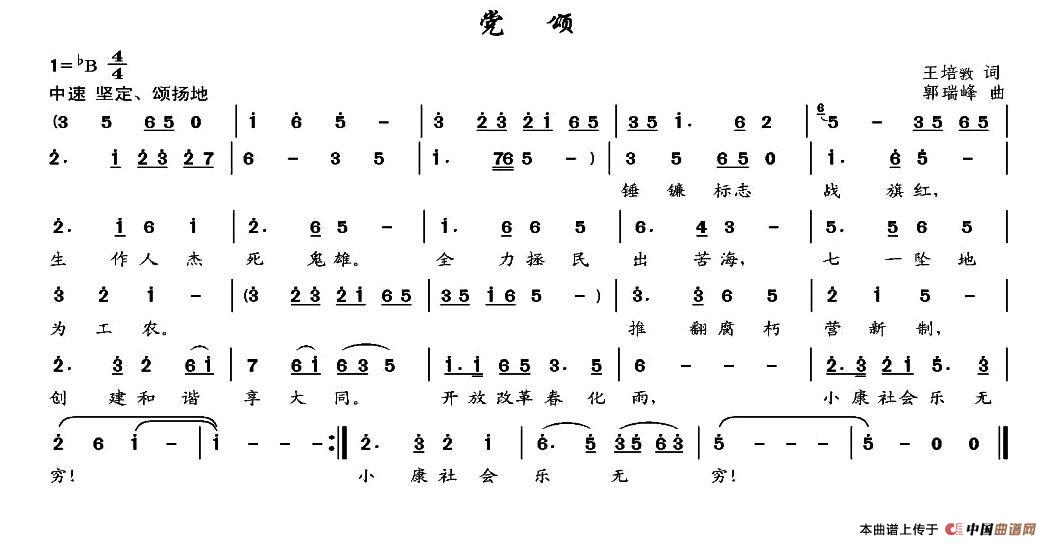 党 颂
1=♭B 4/4
中速 坚定、颂扬地
王培敦 词
郭瑞峰 曲
(3 5 6 5 0 | i 6 5 - | 3 2 3 2 i 6 5 | 3 5 i. 6 2 | 6 5 - 3 5 6 5 |
2. i 2 3 2 7 | 6 - 3 5 | i. 7 6 5 - ) | 3 5 6 5 0 | i. 6 5 - |
锤 镰 标志 战 旗红,
2. i 6 i | 2. 6 5 - | i. 6 6 5 | 6. 4 3 - | 5. 5 6 5 |
生 作人杰 死 鬼雄。 全 力拯民 出 苦海, 七 一坠地
3 2 i - | (3 2 3 2 i 6 5 | 3 5 i 6 5 - ) | 3. 3 6 5 | 2 i 5 - |
为工农。 推 翻腐朽 营新制,
2. 3 2 6 i | 7 6 i 6 3 5 | i. i 6 5 3. 5 | 6 - - - | 2. 3 2 i 5. 3 |
创 建和谐 享大同。 开放改革春化雨, 小康社会乐无
2 6 i - | i - - - :| 2. 3 2 i | 6. 5 3 5 6 3 | 5 - - - | 5 - 0 0 |
穷! 小 康社会 乐 无 穷!
本曲谱上传于 中国曲谱网